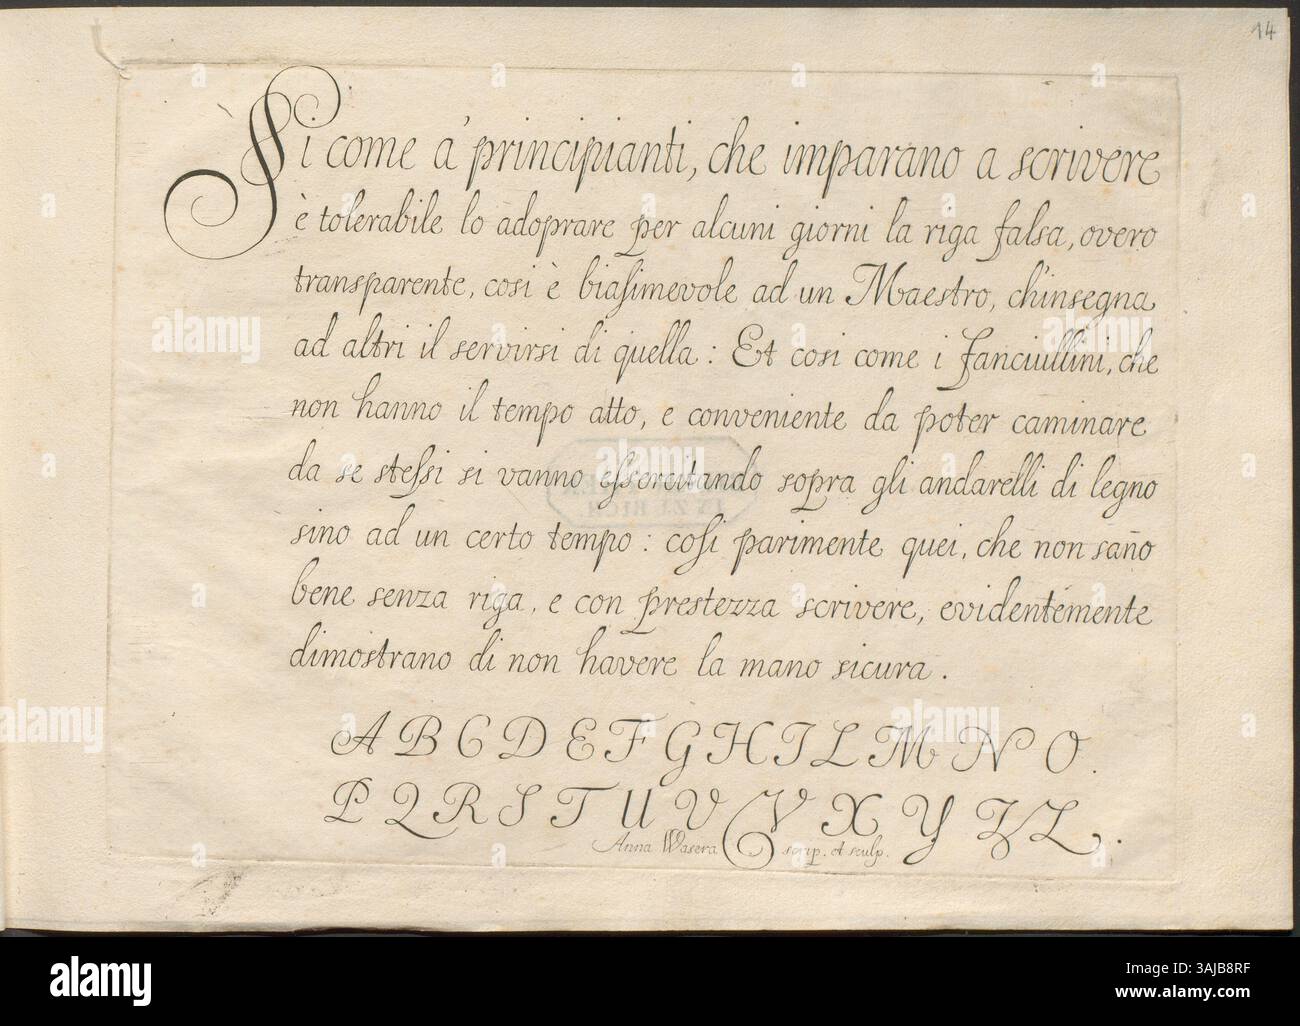 14
Si come a' principianti, che imparano a scrivere
è tolerabile lo adoprare per alcuni giorni la riga falsa, overo
transparente, cosi è biaſimevole ad un Maestro, ch'insegna
ad altri il servirsi di quella: Et cosi come i fanciullini, che
non hanno il tempo atto, e conveniente da poter caminare
da se steſsi si vanno eſsercitando sopra gli andarelli di legno
sino ad un certo tempo: coſi parimente quei, che non sañо
bene senza riga, e con prestezza scrivere, evidentemente
dimostrano di non havere la mano sicura.
A B C D E F G H I L M N O.
P Q R S T U V V X Y Z Z.
Anna Wasera scrip. et sculp.
IN ZÜRICH.
alamy
alamy
Image ID: 3AJB8RF
www.alamy.com